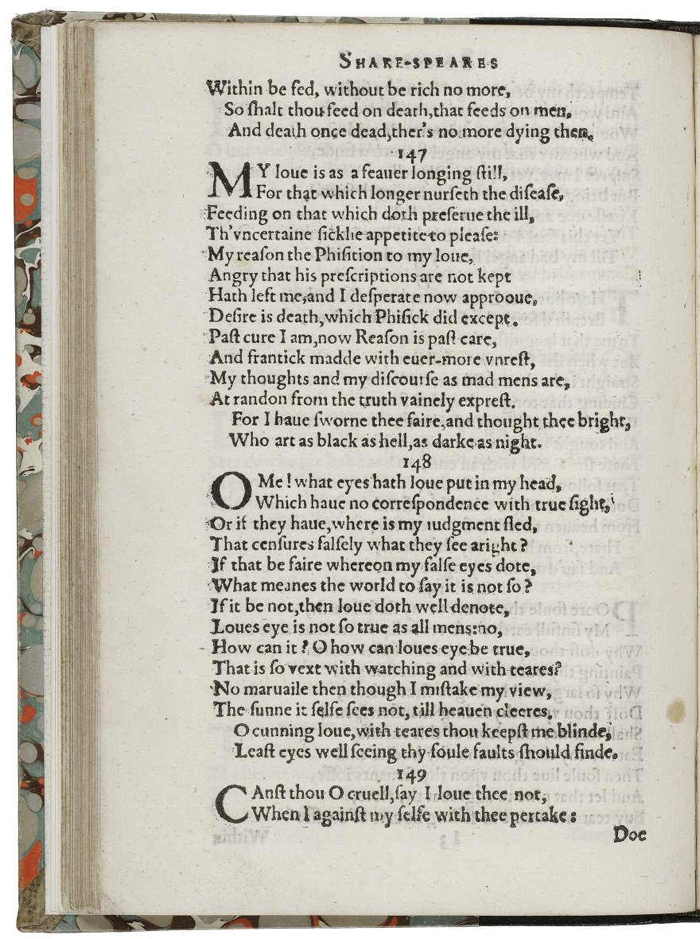 SHAKE-SPEARES
Within be fed, without be rich no more,
So ſhalt thou feed on death,that feeds on men,
And death once dead,ther's no more dying then.
147
MY loue is as a feauer longing ſtill,
For that which longer nurſeth the diſeaſe,
Feeding on that which doth preſerue the ill,
Th'vncertaine ſicklie appetite to pleaſe:
My reaſon the Phiſition to my loue,
Angry that his preſcriptions are not kept
Hath left me,and I deſperate now approoue,
Deſire is death,which Phiſick did except.
Paſt cure I am,now Reaſon is paſt care,
And frantick madde with euer-more vnreſt,
My thoughts and my diſcourſe as mad mens are,
At randon from the truth vainely expreſt.
For I haue ſworne thee faire,and thought thee bright,
Who art as black as hell,as darke as night.
148
O Me ! what eyes hath loue put in my head,
Which haue no correſpondence with true ſight,
Or if they haue,where is my iudgment fled,
That cenſures falſely what they ſee aright ?
If that be faire whereon my falſe eyes dote,
What meanes the world to ſay it is not ſo ?
If it be not,then loue doth well denote,
Loues eye is not ſo true as all mens:no,
How can it ? O how can loues eye be true,
That is ſo vext with watching and with teares?
No maruaile then though I miſtake my view,
The ſunne it ſelfe ſees not, till heauen cleeres.
O cunning loue,with teares thou keepſt me blinde,
Leaſt eyes well ſeeing thy foule faults ſhould finde.
149
CAnſt thou O cruell,ſay I loue thee not,
When I againſt my ſelfe with thee pertake :
Doe